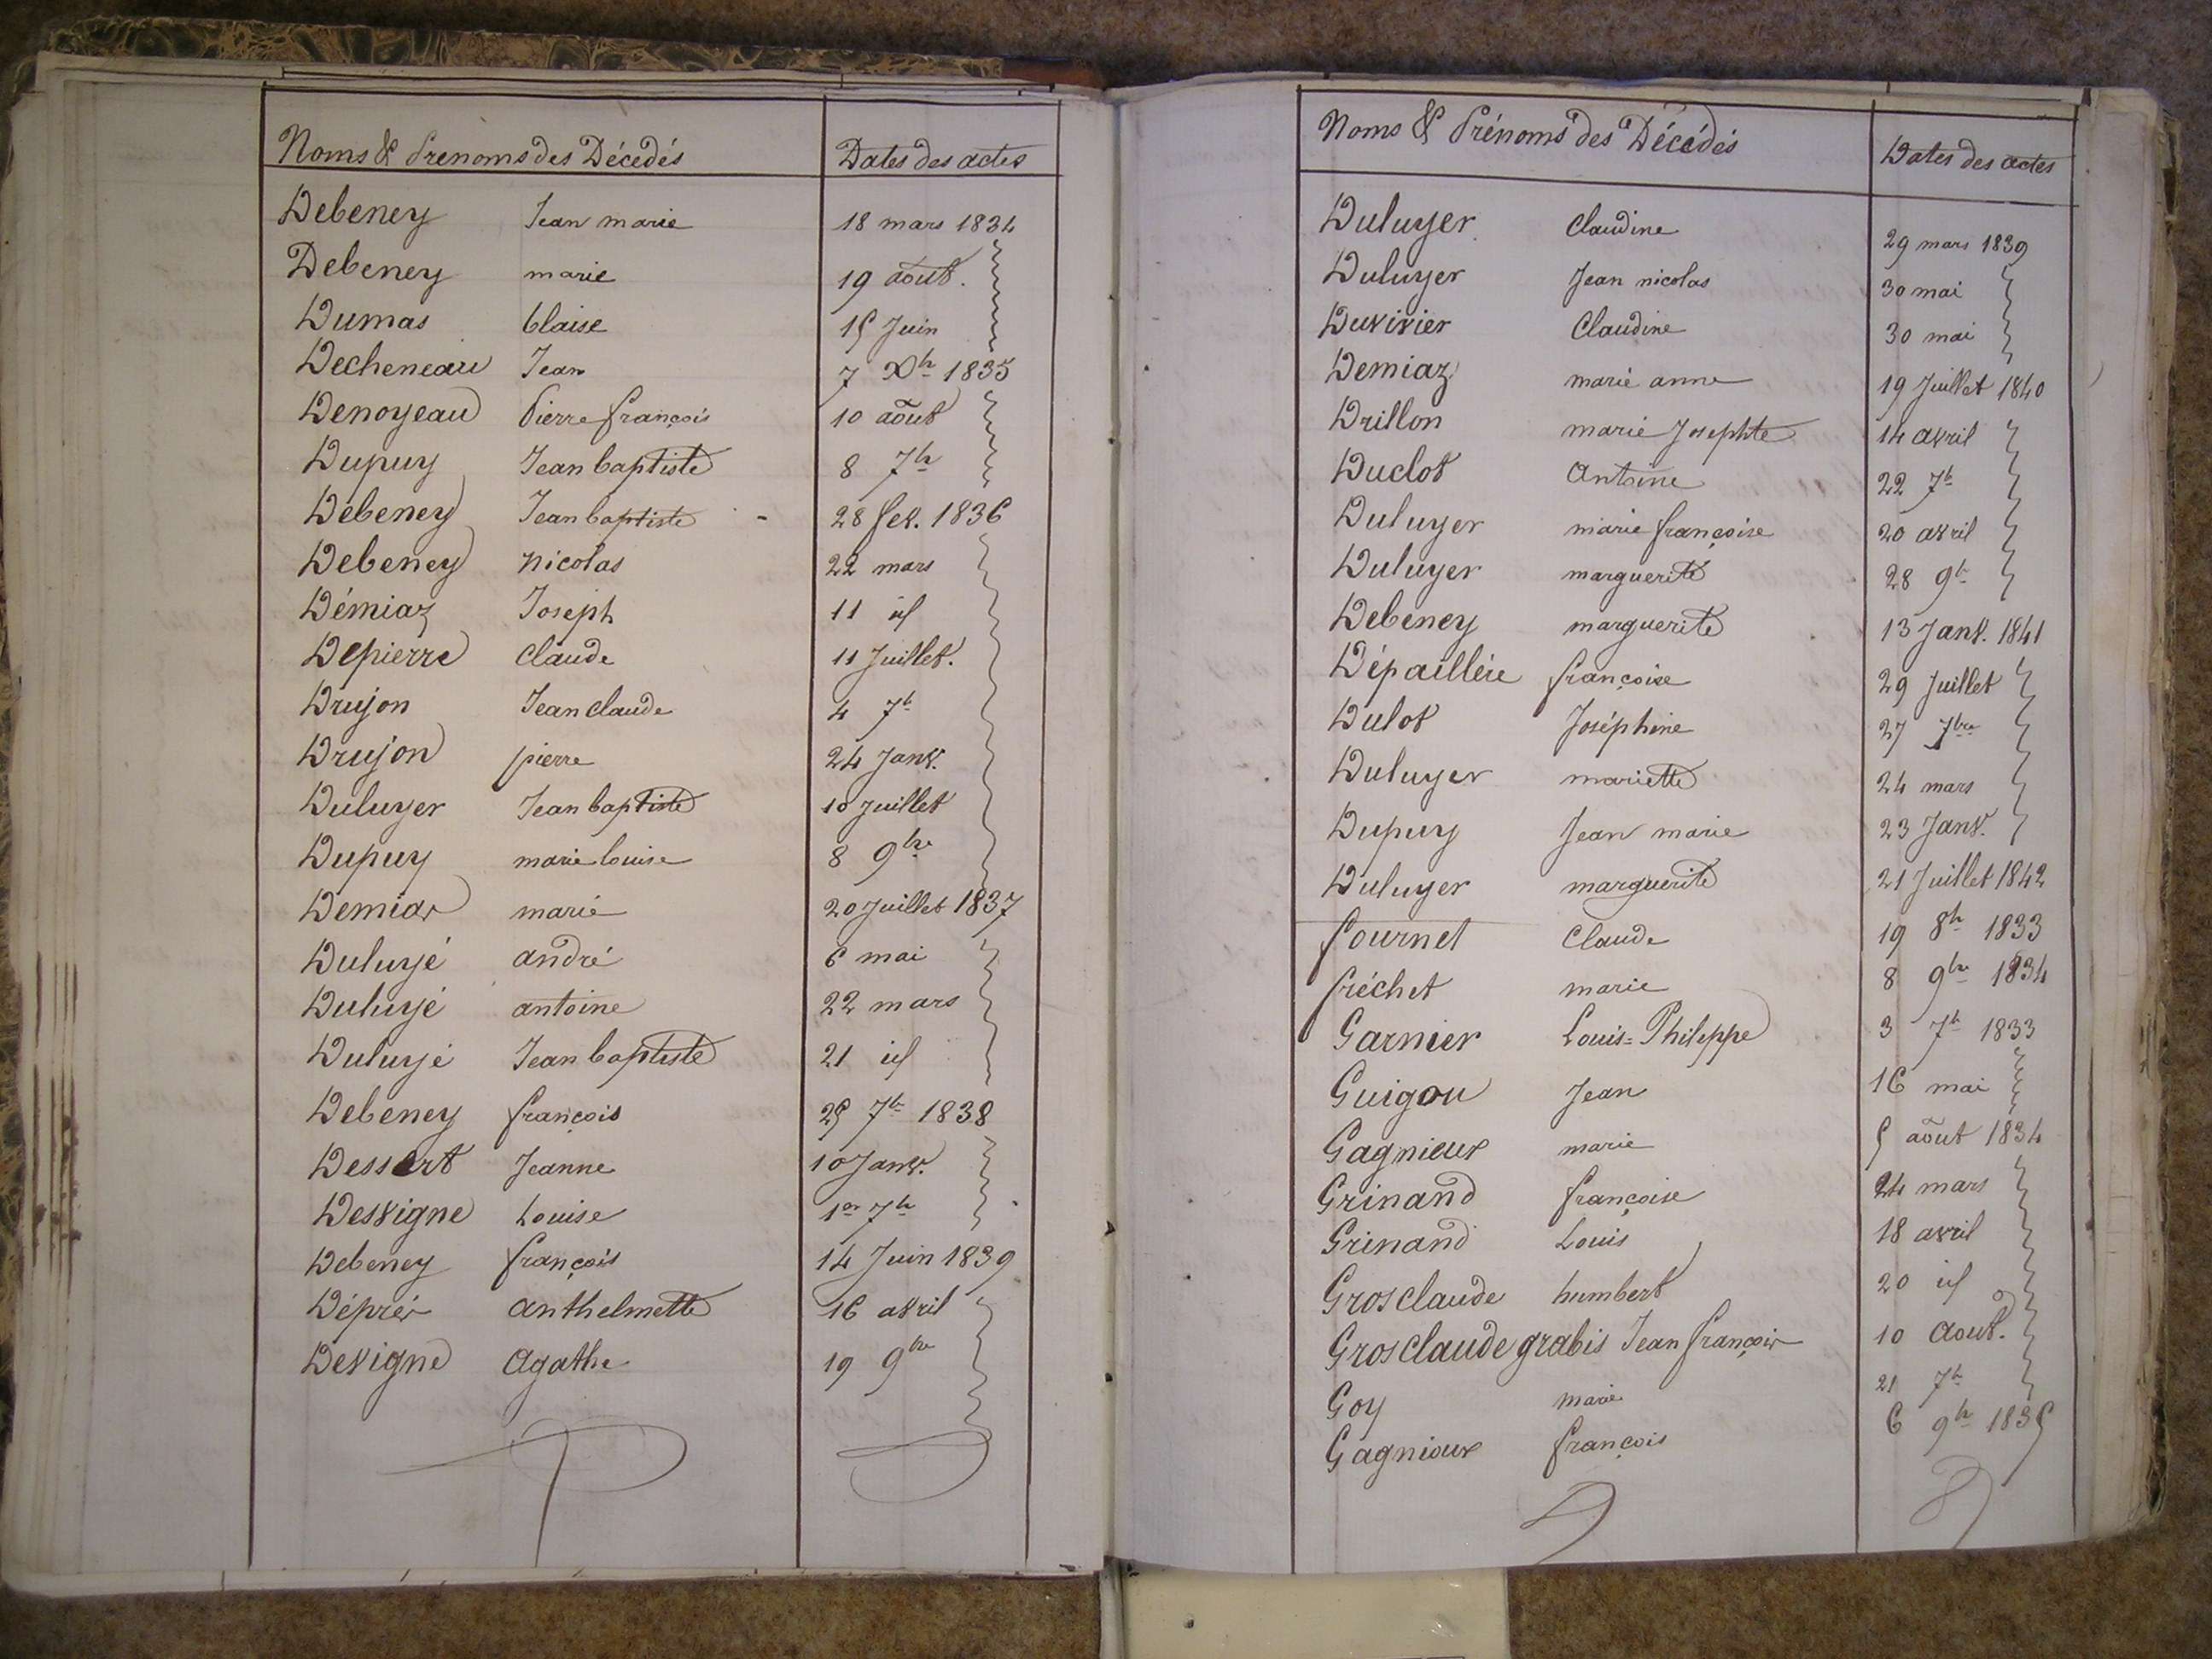 Noms & Prenoms des Décedés Dates des actes
Debeney Jean marie 18 mars 1834
Debeney marie 19 août.
Dumas blaise 15 Juin
Decheneau Jean 7 Xbr 1835
Denoyeau Pierre françois 10 août
Dupuy Jean baptiste 8 7br
Debeney Jean baptiste - 28 fev. 1836
Debeney nicolas 22 mars
Démiaz Joseph 11 id
Depierre Claude 11 Juillet.
Drujon Jean claude 4 7b
Drujon pierre 24 Janv.
Duluyer Jean baptiste 10 Juillet
Dupuy marie louise 8 9bre
Demiaz marie 20 Juillet 1837
Duluyé andré 6 mai
Duluyé antoine 22 mars
Duluyé Jean baptiste 21 id
Debeney françois 25 7br 1838
Dessert Jeanne 10 Janv.
Desvigne Louise 1er 7br
Debeney françois 14 Juin 1839
Dépréz anthelmette 16 avril
Devigne Agathe 19 9bre
Noms & Prénoms des Décédés Dates des actes
Duluyer Claudine 29 mars 1839
Duluyer Jean nicolas 30 mai
Duvivier Claudine 30 mai
Demiaz marie anne 19 Juillet 1840
Drillon marie Josephte 14 avril
Duclot Antoine 22 7b
Duluyer marie françoise 20 avril
Duluyer marguerite 28 9br
Debeney marguerite 13 Janv. 1841
Dépaillére françoise 29 Juillet
Dulot Joséphine 27 7bre
Duluyer mariette 24 mars
Dupuy Jean marie 23 Janv.
Duluyer marguerite 21 Juillet 1842
fournet Claude 19 8br 1833
fréchet marie 8 9bre 1834
Garnier Louis=Philippe 3 7br 1833
Guigou Jean 16 mai
Gagnieux marie 5 août 1834
Grinand françoise 24 mars
Grinand Louis 18 avril
Grosclaude humbert 20 id
Grosclaude grabis Jean françois 10 Aout.
Goy marie 21 7br
Gagnioux françois 6 9br 1835